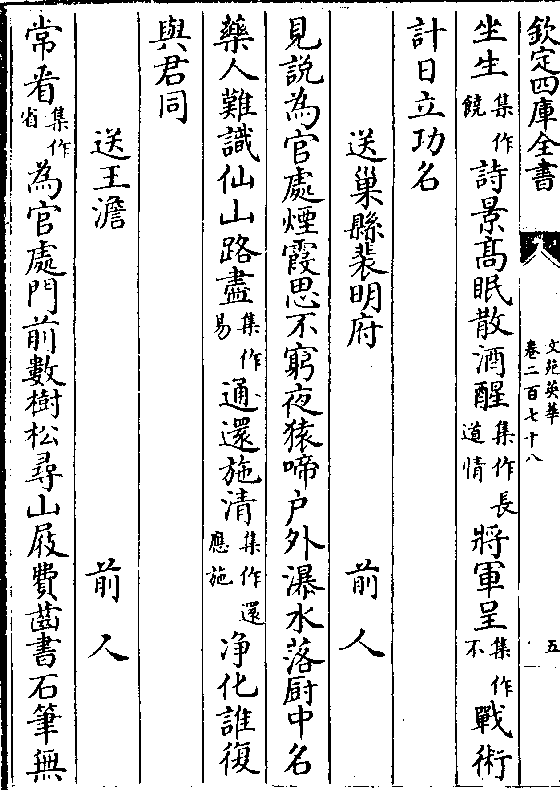 欽定四庫全書
文苑英華
卷二百七十八
五
坐生集作饒詩景高眠散酒醒集作長道情將軍呈集作不戰術
計日立功名
送巢縣裴明府 前人
見説為官處煙霞思不窮夜猿啼户外瀑水落厨中名
藥人難識仙山路盡集作易通還施清集作還應施净化誰復
與君同
送王澹 前人
常㸔集作省為官處門前數樹松尋山屐費齒書石筆無